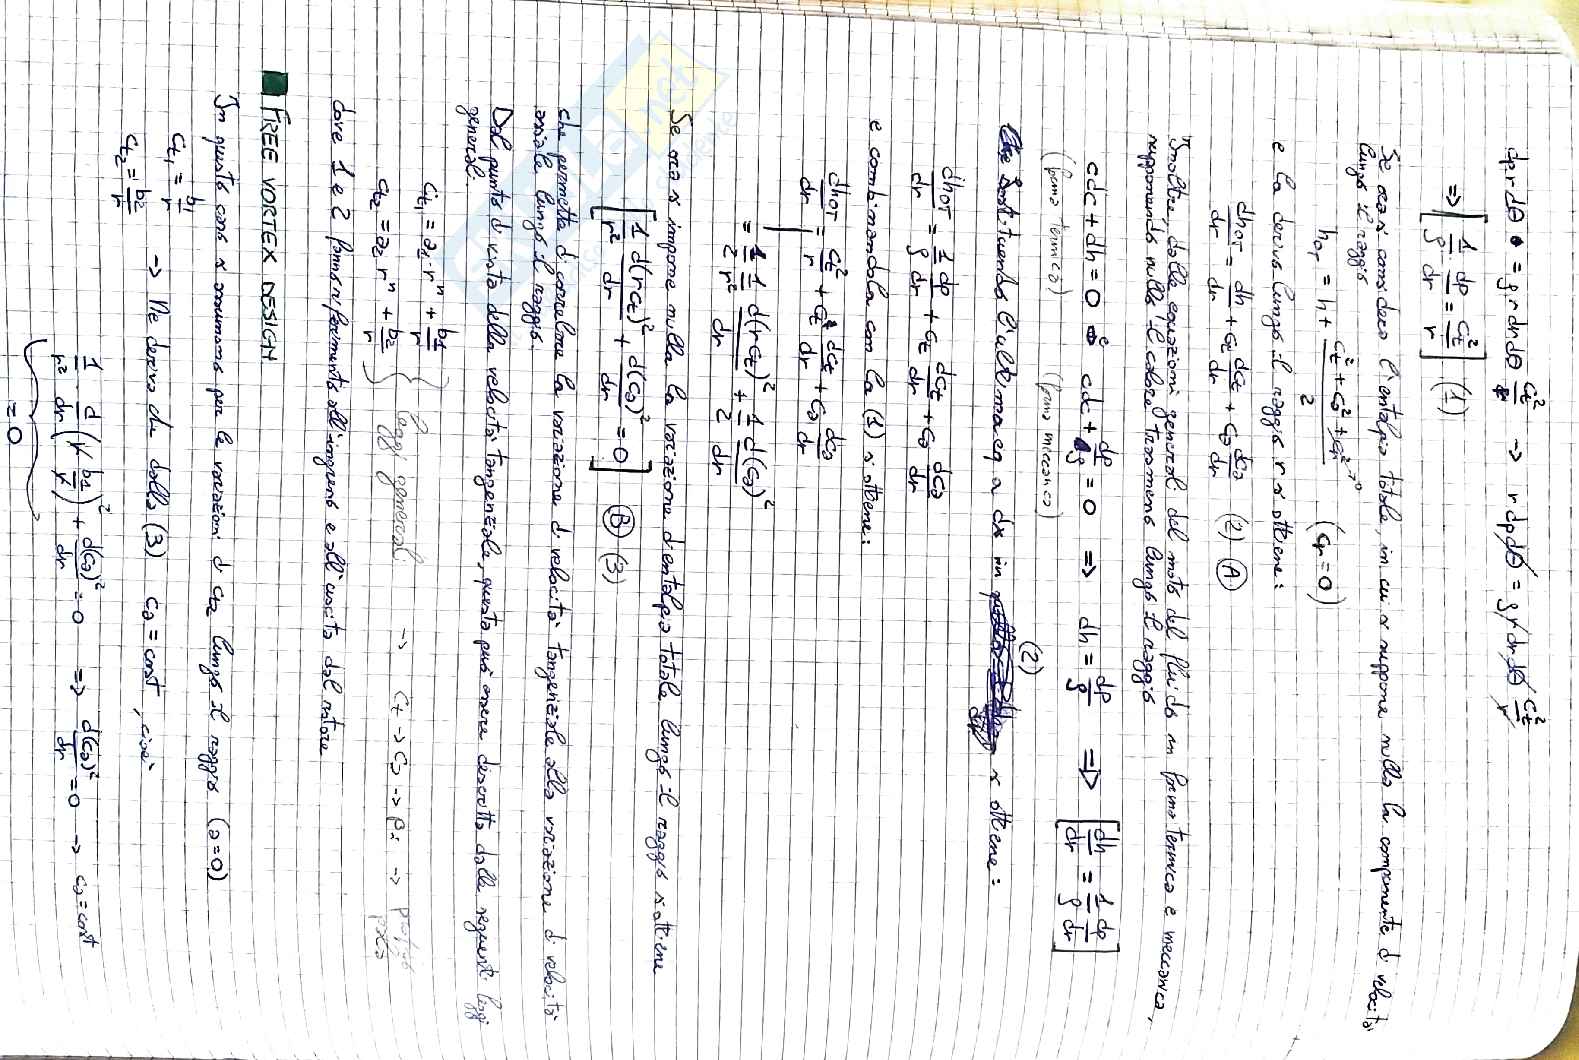 dp r dθ = ρ r dr dθ c_t²/r → r dp dθ = ρ r dr dθ c_t²/r
⇒ [1/ρ dp/dr = c_t²/r] (1)
Se ora considero l'entalpia totale, in cui si suppone nulla la componente di velocità
lungo il raggio
h_0T = h + (c_t² + c_a² + c_r²→0)/2 (c_r = 0)
e la derivo lungo il raggio r si ottiene:
dh_0T/dr = dh/dr + c_t dc_t/dr + c_a dc_a/dr (2) (A)
Inoltre, dalle equazioni generali del moto del fluido in forma termica e meccanica,
supponendo nullo il calore trasmesso lungo il raggio
cdc + dh = 0 e cdc + dp/ρ = 0 ⇒ dh = dp/ρ ⇒ [dh/dr = 1/ρ dp/dr]
(forma termica) (forma meccanica)
(2)
Sostituendo l'ultima eq a dx in si ottiene:
dh_0T/dr = 1/ρ dp/dr + c_t dc_t/dr + c_a dc_a/dr
e combinandola con la (1) si ottiene:
dh_0T/dr = c_t²/r + c_t dc_t/dr + c_a dc_a/dr
= 1/2 1/r² d(rc_t)²/dr + 1/2 d(c_a)²/dr
Se ora si impone nulla la variazione d'entalpia totale lungo il raggio si ottiene
[1/r² d(rc_t)²/dr + d(c_a)²/dr = 0] (B) (3)
che permette di correlare la variazione di velocità tangenziale alla variazione di velocità
assiale lungo il raggio.
Dal punto di vista della velocità tangenziale, questa può essere descritta dalle seguenti leggi
generali:
c_t1 = a_1·r^n + b_1/r
c_t2 = a_2 r^n + b_2/r } leggi generali → c_t → c_a → β_i → profilo
dove 1 e 2 fanno riferimento all'ingresso e all'uscita dal rotore
FREE VORTEX DESIGN
In questo caso si assumono per le variazioni di c_t2 lungo il raggio (a=0)
c_t1 = b_1/r
c_t2 = b_2/r → Ne deriva che dalla (3) c_a = cost, cioè
1/r² d/dr (r b_1/r)² + d(c_a)²/dr = 0 ⇒ d(c_a)²/dr = 0 → c_a = cost
= 0